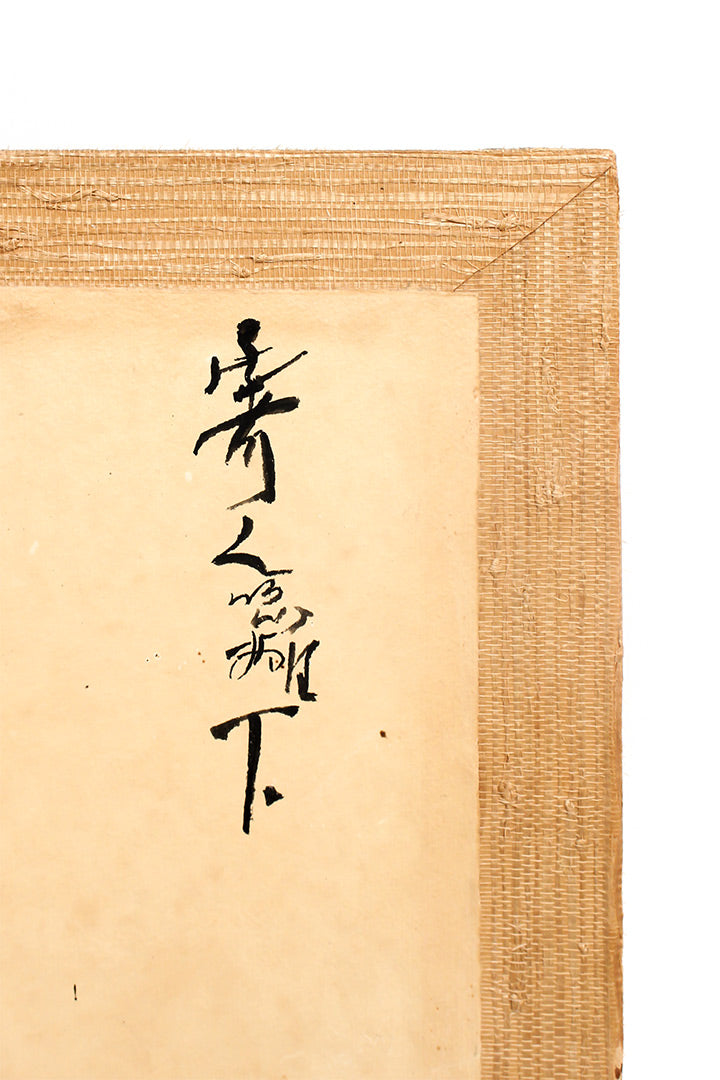 寄人籬下